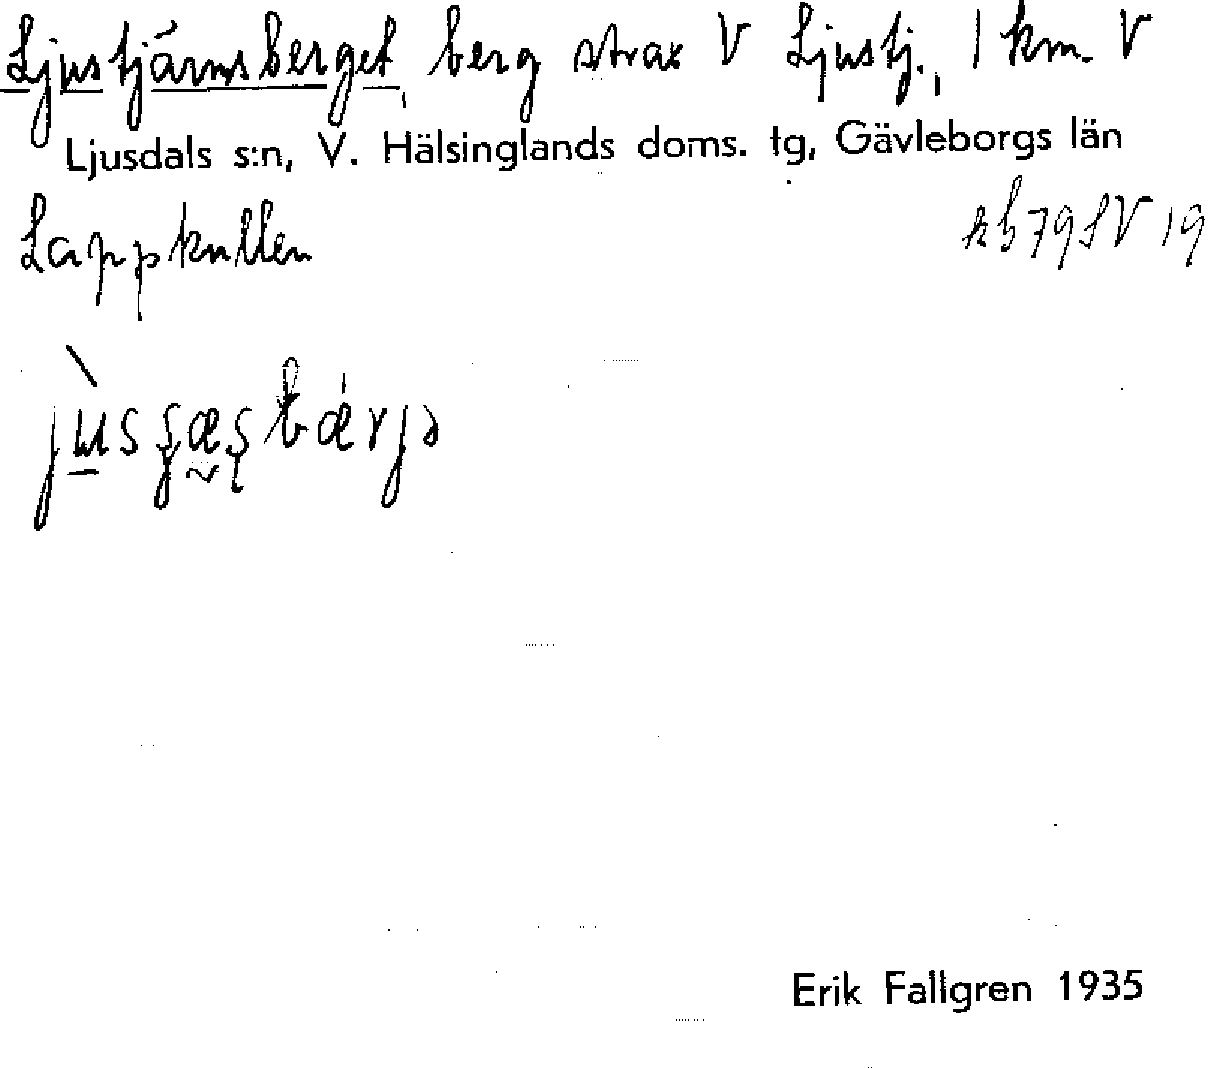 Ljustjärnsberget, berg strax V Ljustj., 1 km. V
Ljusdals s:n, V. Hälsinglands doms. tg, Gävleborgs län
Lappkullen
79 SV 19
Erik Fallgren 1935